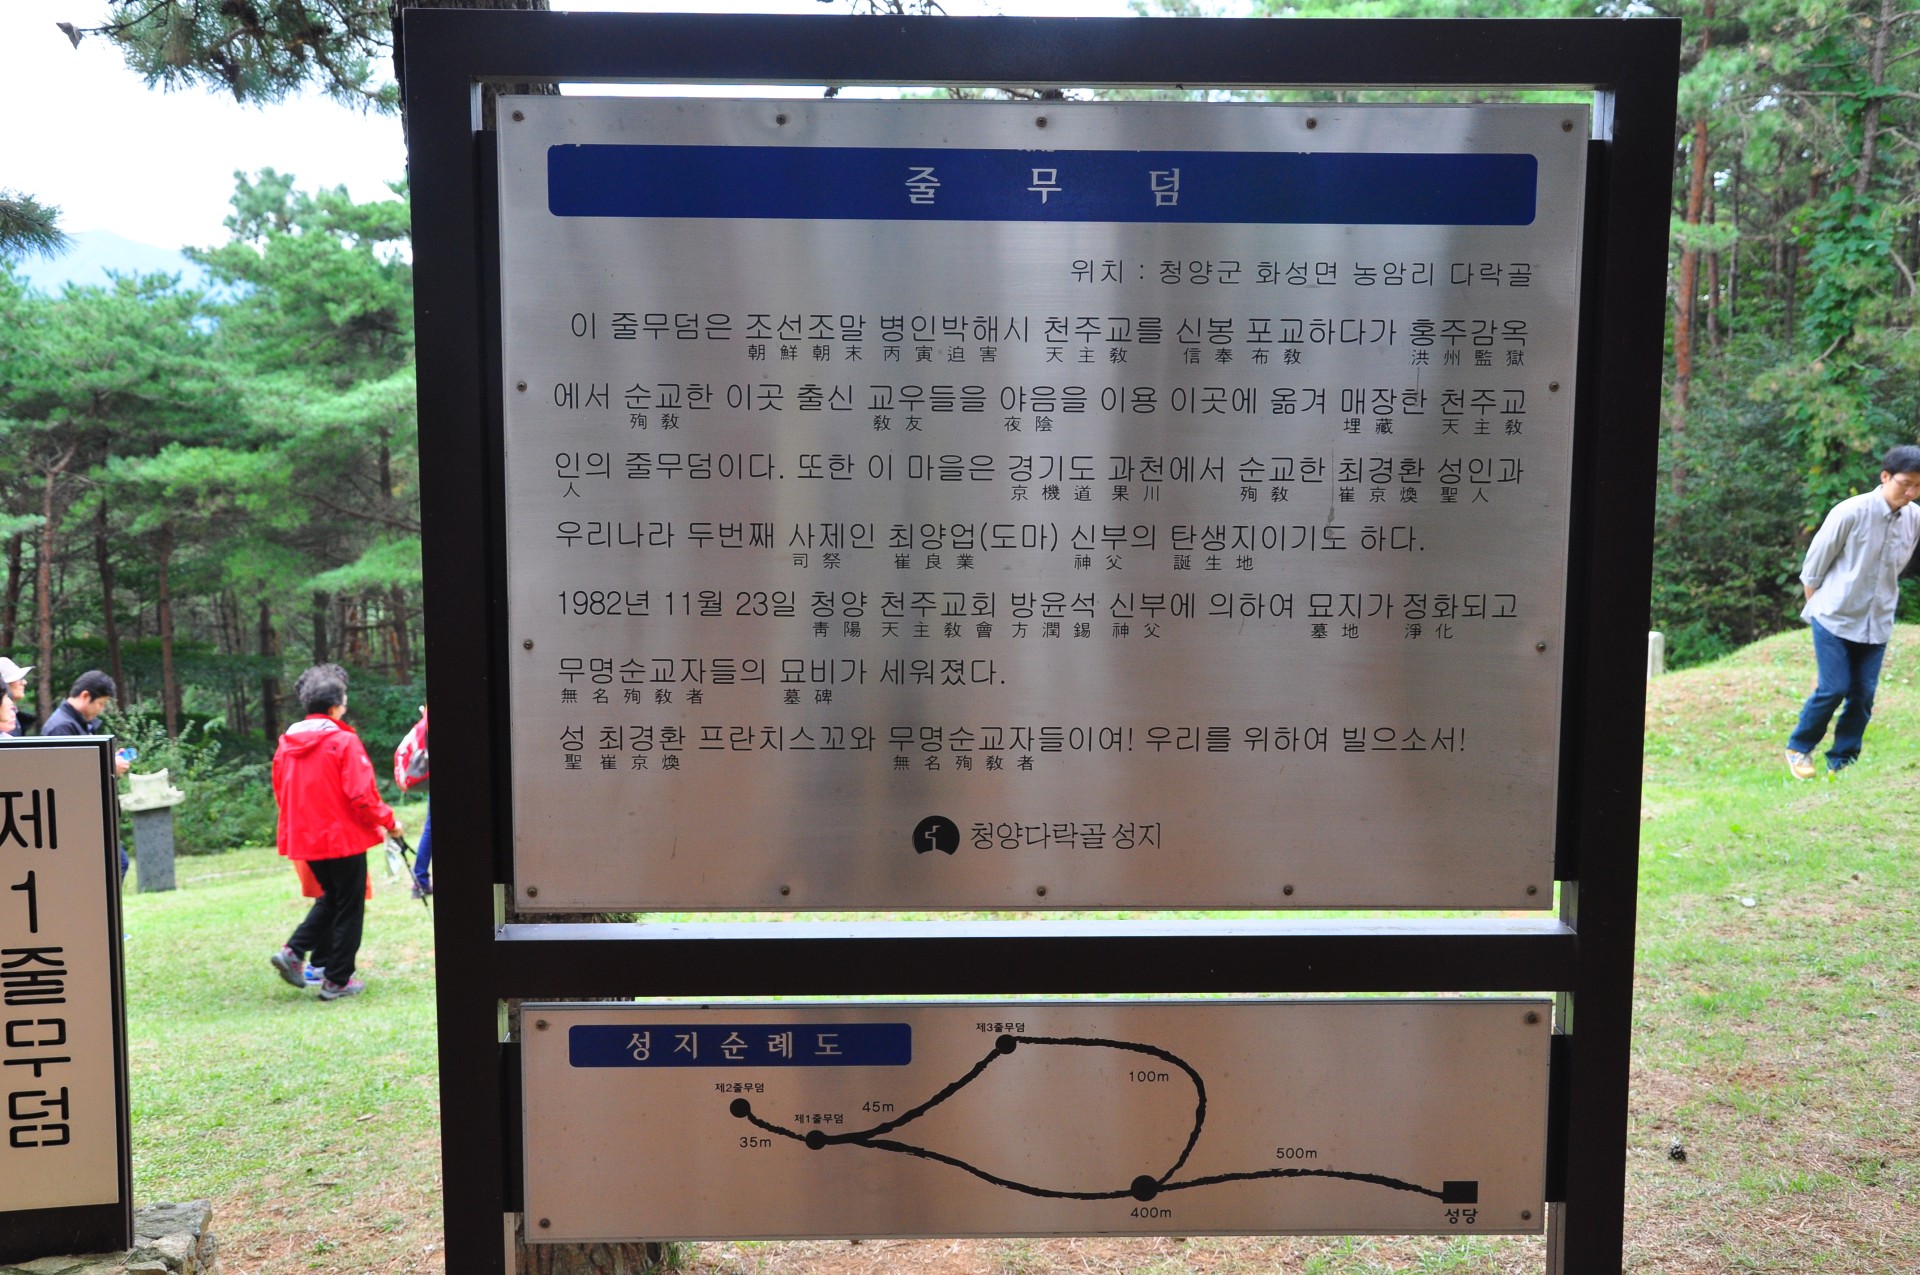 줄 무 덤
위치 : 청양군 화성면 농암리 다락골
이 줄무덤은 조선조말 병인박해시 천주교를 신봉 포교하다가 홍주감옥
朝鮮朝末 丙寅迫害 天主敎 信奉布敎 洪州監獄
에서 순교한 이곳 출신 교우들을 야음을 이용 이곳에 옮겨 매장한 천주교
殉敎 敎友 夜陰 埋藏 天主敎
인의 줄무덤이다. 또한 이 마을은 경기도 과천에서 순교한 최경환 성인과
人 京機道 果川 殉敎 崔京煥 聖人
우리나라 두번째 사제인 최양업(도마) 신부의 탄생지이기도 하다.
司祭 崔良業 神父 誕生地
1982년 11월 23일 청양 천주교회 방윤석 신부에 의하여 묘지가 정화되고
靑陽 天主敎會 方潤錫 神父 墓地 淨化
무명순교자들의 묘비가 세워졌다.
無名殉敎者 墓碑
성 최경환 프란치스꼬와 무명순교자들이여! 우리를 위하여 빌으소서!
聖 崔京煥 無名殉敎者
청양다락골 성지
성지순례도
제3줄무덤
100m
제2줄무덤
45m
제1줄무덤
35m
500m
400m
성당
제1줄무덤